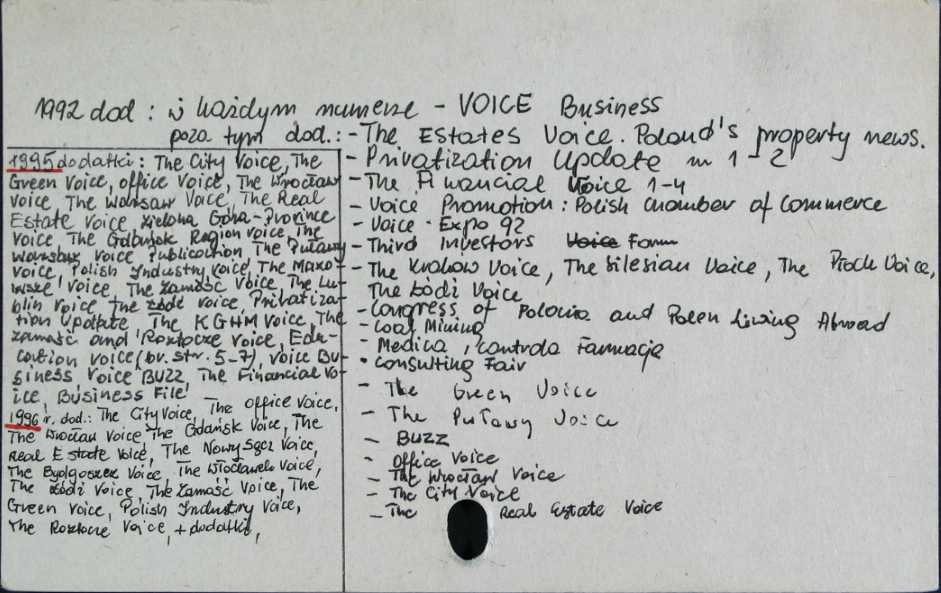 1992 dod : w każdym numerze - VOICE Business
poza tym dod.: - The EStates Voice. Poland's property news.
- Privatization Update nr 1-2
- The Financial Voice 1-4
- Voice Promotion: Polish Chamber of Commerce
- Voice - Expo 92
- Third Investors Voice Forum
- The Kraków Voice, The Silesian Voice, The Płock Voice,
The Łódź Voice
- Congress of Polonia and Polen Living Abroad
- Coal Mining
- Medica, Controla Farmacja
• Consulting Fair
- The Green Voice
- The Puławy Voice
- BUZZ
- Office Voice
- The Wrocław Voice
- The City Voice
- The Real Estate Voice
1995 dodatki: The City Voice, The
Green Voice, Office Voice, The Wrocław
Voice, The Warsaw Voice, The Real
Estate Voice Zielona Góra-Province
Voice, The Gdańsk Region Voice, The
Voice Publication, The Puławy
Voice, Polish Industry Voice, The Mazo-
wsze Voice, The Zamość Voice, The Lu-
blin Voice, The Łódź Voice, Privatiza-
tion Update, The KGHM Voice, The
Zamość and Roztocze Voice, Edu-
cation Voice (br. str. 5-7), Voice Bu-
siness, Voice BUZZ, The Financial Vo-
ice, Business File
1996 r. dod.: The City Voice, The Office Voice,
The Wrocław Voice, The Gdańsk Voice, The
Real Estate Voice, The Nowy Sącz Voice,
The Bydgoszcz Voice, The Włocławek Voice,
The Łódź Voice, The Zamość Voice, The
Green Voice, Polish Industry Voice,
The Roztocze Voice, + dodatki,